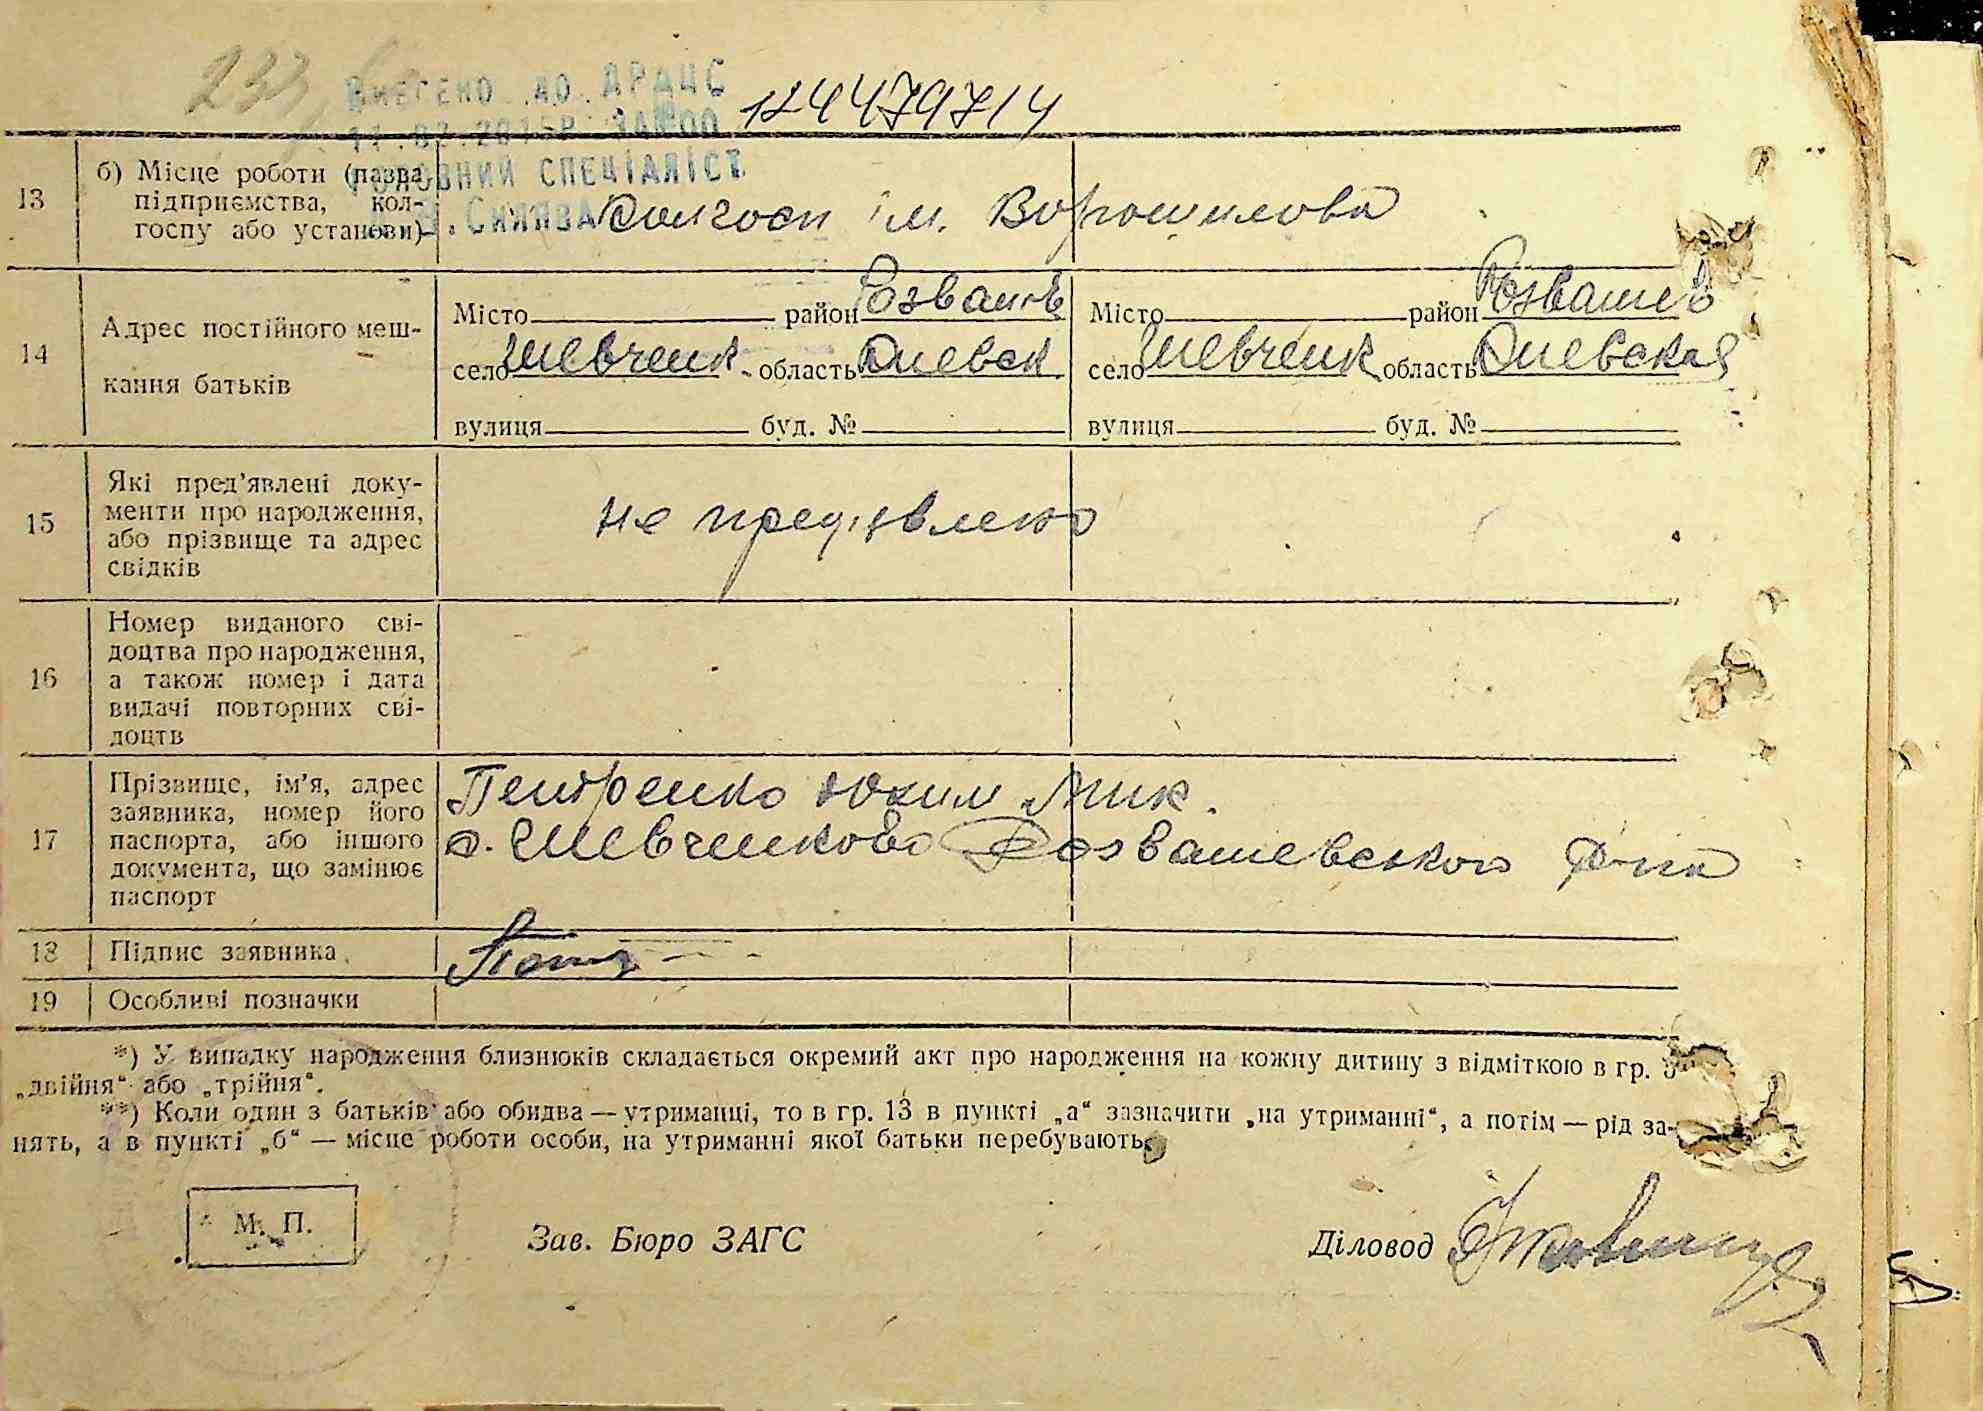 233
ВНЕСЕНО ДО ДРАЦС
124479714
11.02.2015Р. ЗА№00
ГОЛОВНИЙ СПЕЦІАЛІСТ
13
б) Місце роботи (назва підприємства, кол-
госпу або установи)
Колгосп ім. Ворошилова
14
Адрес постійного меш-
кання батьків
Місто район Розважів
село Шевченк область Киевск
вулиця буд. №
Місто район Розважев
село Шевченк область Киевская
вулиця буд. №
15
Які пред'явлені доку-
менти про народження,
або прізвище та адрес
свідків
не предявлено
16
Номер виданого сві-
доцтва про народження,
а також номер і дата
видачі повторних сві-
доцтв
17
Прізвище, ім'я, адрес
заявника, номер його
паспорта, або іншого
документа, що замінює
паспорт
Петренко Юхим Мик.
с. Шевченково Розважевського р-на
18
Підпис заявника
19
Особливі позначки
*) У випадку народження близнюків складається окремий акт про народження на кожну дитину з відміткою в гр. 5
„двійня“ або „трійня“.
**) Коли один з батьків або обидва — утриманці, то в гр. 13 в пункті „а“ зазначити „на утриманні“, а потім — рід за-
нять, а в пункті „б“ — місце роботи особи, на утриманні якої батьки перебувають.
М. П.
Зав. Бюро ЗАГС
Діловод